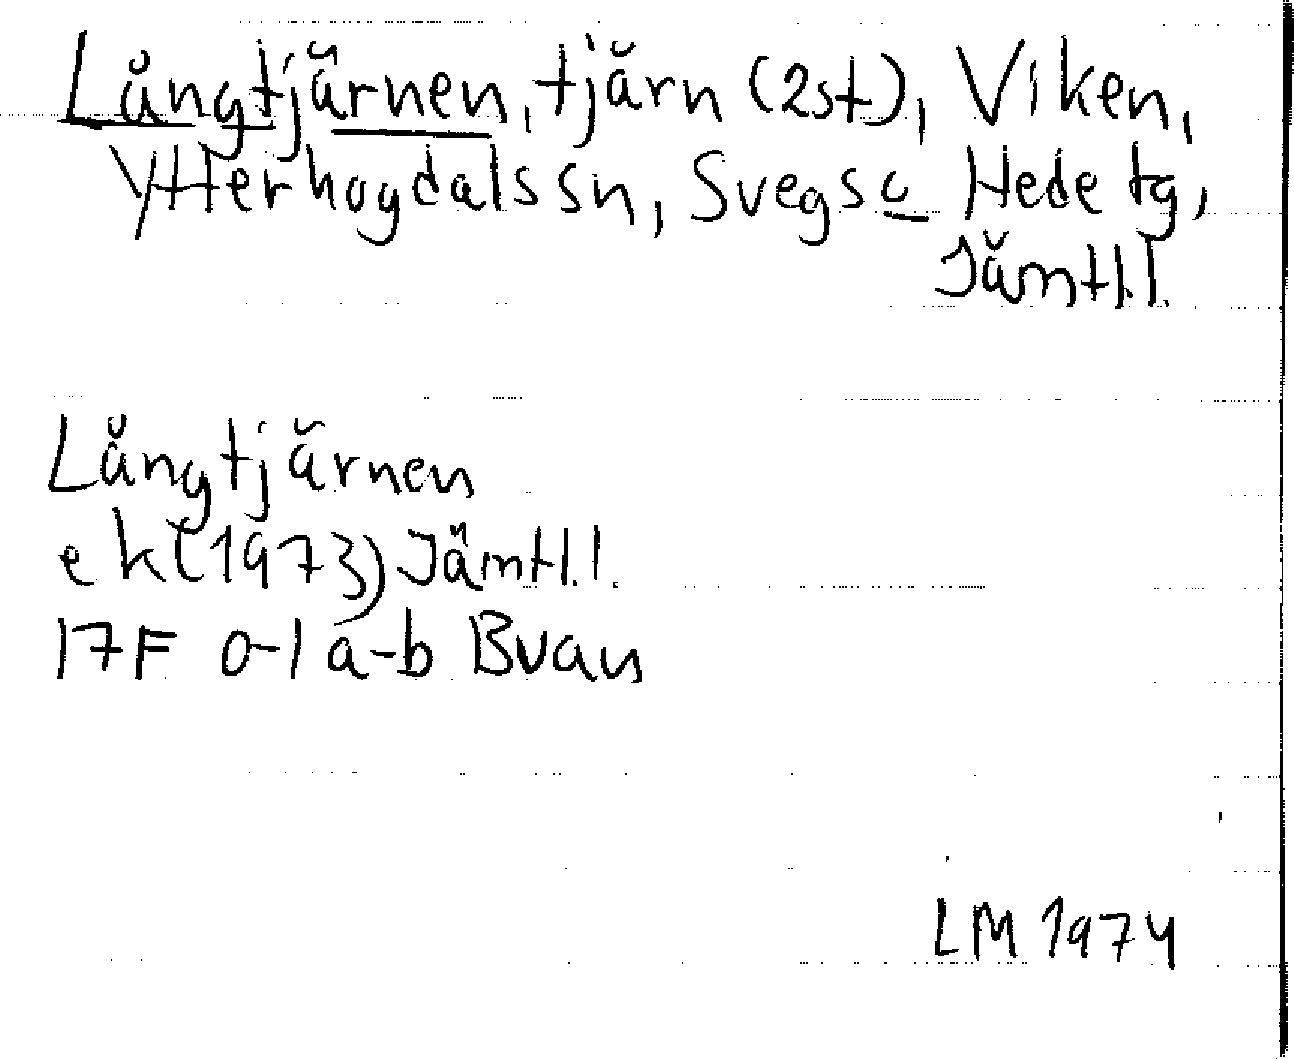 Långtjärnen, tjärn (2st), Viken,
Ytterhogdals sn, Svegs o Hede tg,
Jämtl.l.
Långtjärnen
ek (1973) Jämtl.l.
17F 0-1 a-b Bvan
LM 1974